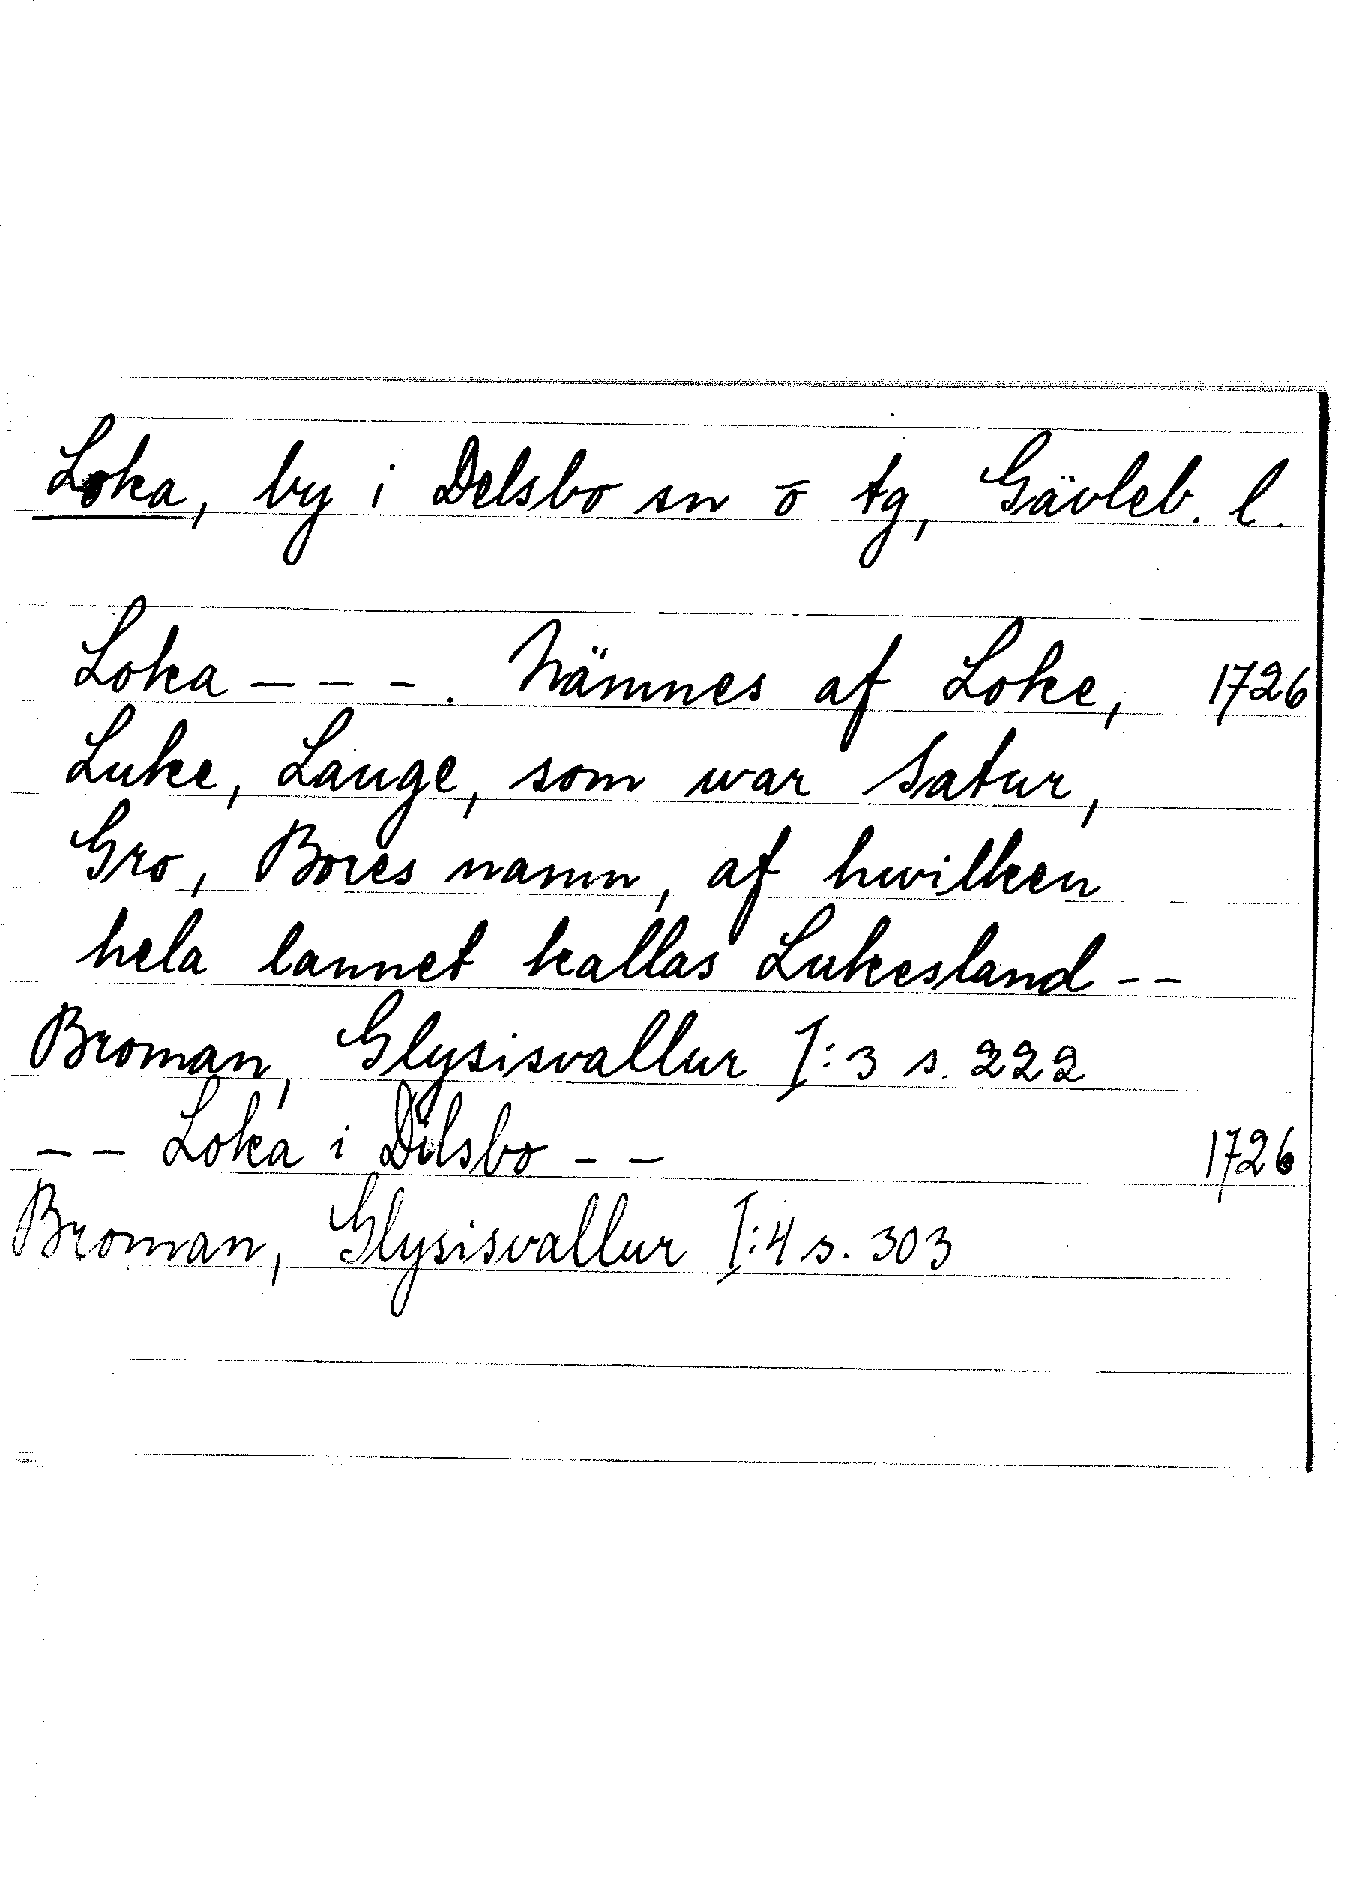 Loka, by i Delsbo sn o tg, Gävleb. l.
Loka - - - . Nämnes af Loke, 1726
Luke, Lauge, som war Satur,
Gro, Bores namn, af hwilken
hela lannet kallas Lukesland - -
Broman, Glysisvallur I:3 s. 222
- - Loka i Dilsbo - - 1726
Broman, Glysisvallur I:4 s. 303